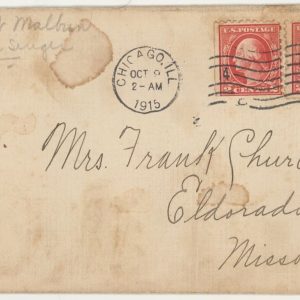 Malbin
CHICAGO, ILL.
OCT 9
2-AM
1915
U.S. POSTAGE
2 CENTS 2
Mrs. Frank Churc
Eldorado
Misso